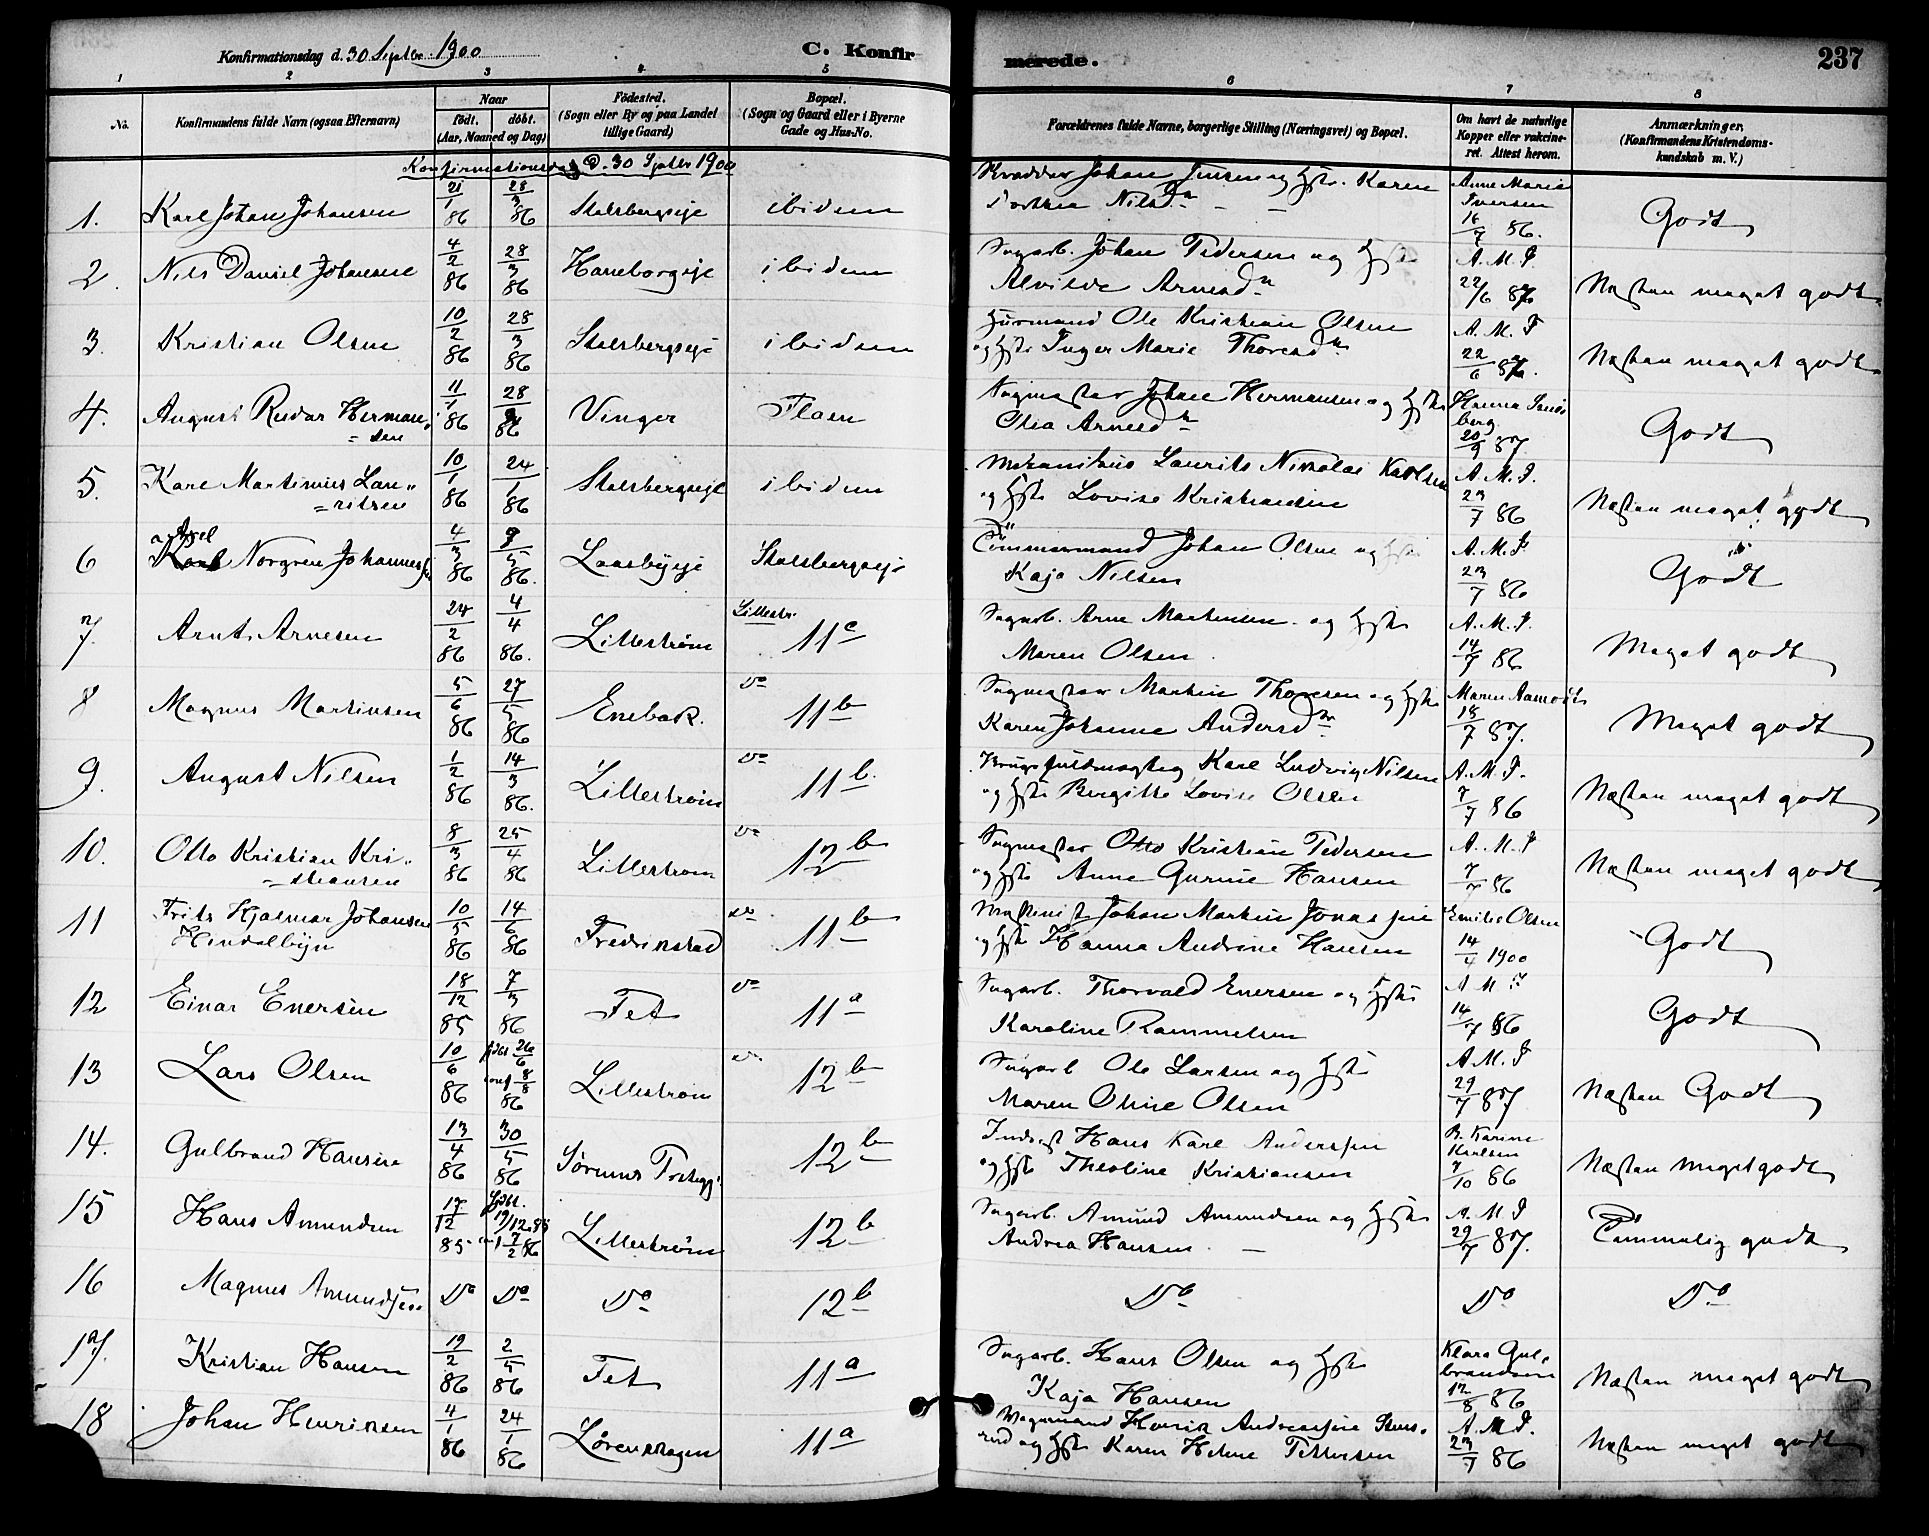 Konfirmationsdag d. 30 Septbr. 1900
C. Konfirmerede.
237
1 2 3 4 5 6 7 8
No.
Konfirmandens fulde Navn (ogsaa Efternavn)
Naar
født. døbt.
(Aar, Maaned og Dag)
Födested.
(Sogn eller By og paa Landet tillige Gaard)
Bopæl.
(Sogn og Gaard eller i Byerne Gade og Hus-No.
Forældrenes fulde Navne, borgerlige Stilling (Næringsvei) og Bopæl.
Om havt de naturlige Kopper eller vakcineret. Attest herom.
Anmærkninger.
(Konfirmandens Kristendomskundskab m. V.)
Konfirmationsdag d. 30 Septbr 1900
1. Karl Johan Johansen 21/1 86 28/3 86 Stalsbergeje ibidem Skrædder Johan Jensen og Hstr. Karen Dorthea Nilsdr Anne Marie Iversen 16/7 86. Godt
2. Nils Daniel Johansen 4/2 86 28/3 86 Haneborgeje ibidem Sagarb. Johan Pedersen og Hstr Alvilde Arnesdr A. M. I. 22/6 87 Næsten meget godt
3. Kristian Olsen 10/2 86 28/3 86 Stalsbergeje ibidem Husmand Ole Kristian Olsen og Hstr Inger Marie Thoresdr A. M. I 22/6 87. Næsten meget godt
4. August Reidar Hermansen 11/1 86 28/3 86 Vinger Flaen Sagmester Johan Hermansen og Hstr Olia Arnesdr Hanna berg 20/9 87. Godt
5. Karl Martinius Lauritsen 10/1 86 24/1 86 Stalsbergeje ibidem Mekanikus Laurits Nikolai Karlsen og Hstr Lovise Kristiansen A. M. I. 23/7 86 Næsten meget godt
6 Axel Norgren Johannessen 4/3 86 9/5 86. Laasbyeje Stalsbergeje Tømmermand Johan Olsen og Hstr Kaja Nilsen A. M. I 23/7 86 Godt
7. Arnt Arnesen 24/2 86 4/4 86. Lillestrøm Lillestr. 11c Sagarb. Arne Martinsen og Hstr Maren Olsen A. M. I. 14/7 86 Meget godt
8 Magnus Martinsen 5/6 86 27/5 86 Enebak. Do 11b Sagmester Martin Thoresen og Hstr Karen Johanne Andersdr Maren Aamodt 18/7 87. Meget godt
9. August Nilsen 1/2 86 14/3 86. Lillestrøm Do 11b. Brugsfuldmægtig Karl Ludvig Nilsen og Hstr Bergitte Lovise Olsen A. M. I. 7/7 86 Næsten meget godt
10. Otto Kristian Kristiansen 8/3 86 25/4 86 Lillestrøm Do 12b Sagmester Otto Kristian Pedersen og Hstr Anne Gurine Hansen A. M. I 7/7 86 Næsten meget godt
11 Frits Hjalmar Johansen Hindalbyn 10/5 86 14/6 86 Fredrikstad Do 11b Maskinist Johan Martin Jonassen og Hstr Hanna Andrine Hansen Emilie Olsen 14/4 1900 Godt
12 Einar Enersen 18/12 85 7/3 86 Fet Do 11a Sagarb. Thorvald Enersen og Hstr Karoline Rammelsen A M I 14/7 86 Godt
13 Lars Olsen 10/6 86 hjdbt 26/6 conf 8/8 86 Lillestrøm Do 12b Sagarb Ole Larsen og Hstr Maren Oline Olsen A. M. I 29/7 87 Næsten Godt
14. Gulbrand Hansen 13/4 86 30/5 86 Sørums 12b Hans Karl Anderssen og Hstr Theoline Kristiansen B. Karine Karlsen 7/10 86 Næsten meget godt
15 Hans Amundsen 17/12 85 hjdbt. 19/12 85 7/2 86 Lillestrøm 12b Sagarb. Amund Amundsen og Hstr Andrea Hansen A. M I 29/7 87. Temmelig godt
16 Magnus Amundsen Do Do Do 12b Do Do Do
17. Kristian Hansen 19/2 86 2/5 86 Fet 11a Sagarb. Hans Olsen og Hstr Kaja Hansen Klara Gulbrandsen 12/8 86 Næsten meget godt
18 Johan Henriksen 4/1 86 24/1 86 Lørenskogen 11a Henrik Andreassen og Hstr Karen Helene Pettersen A. M I. 23/7 86 Næsten meget godt